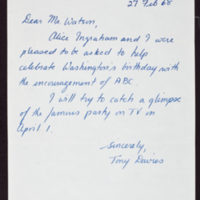 27 Feb 68
Dear Mr. Watson,
Alice Ingraham and I were
pleased to be asked to help
celebrate Washington's birthday with
the encouragement of ABC.
I will try to catch a glimpse
of the famous party on TV on
April 1.
Sincerely,
Tony Davies